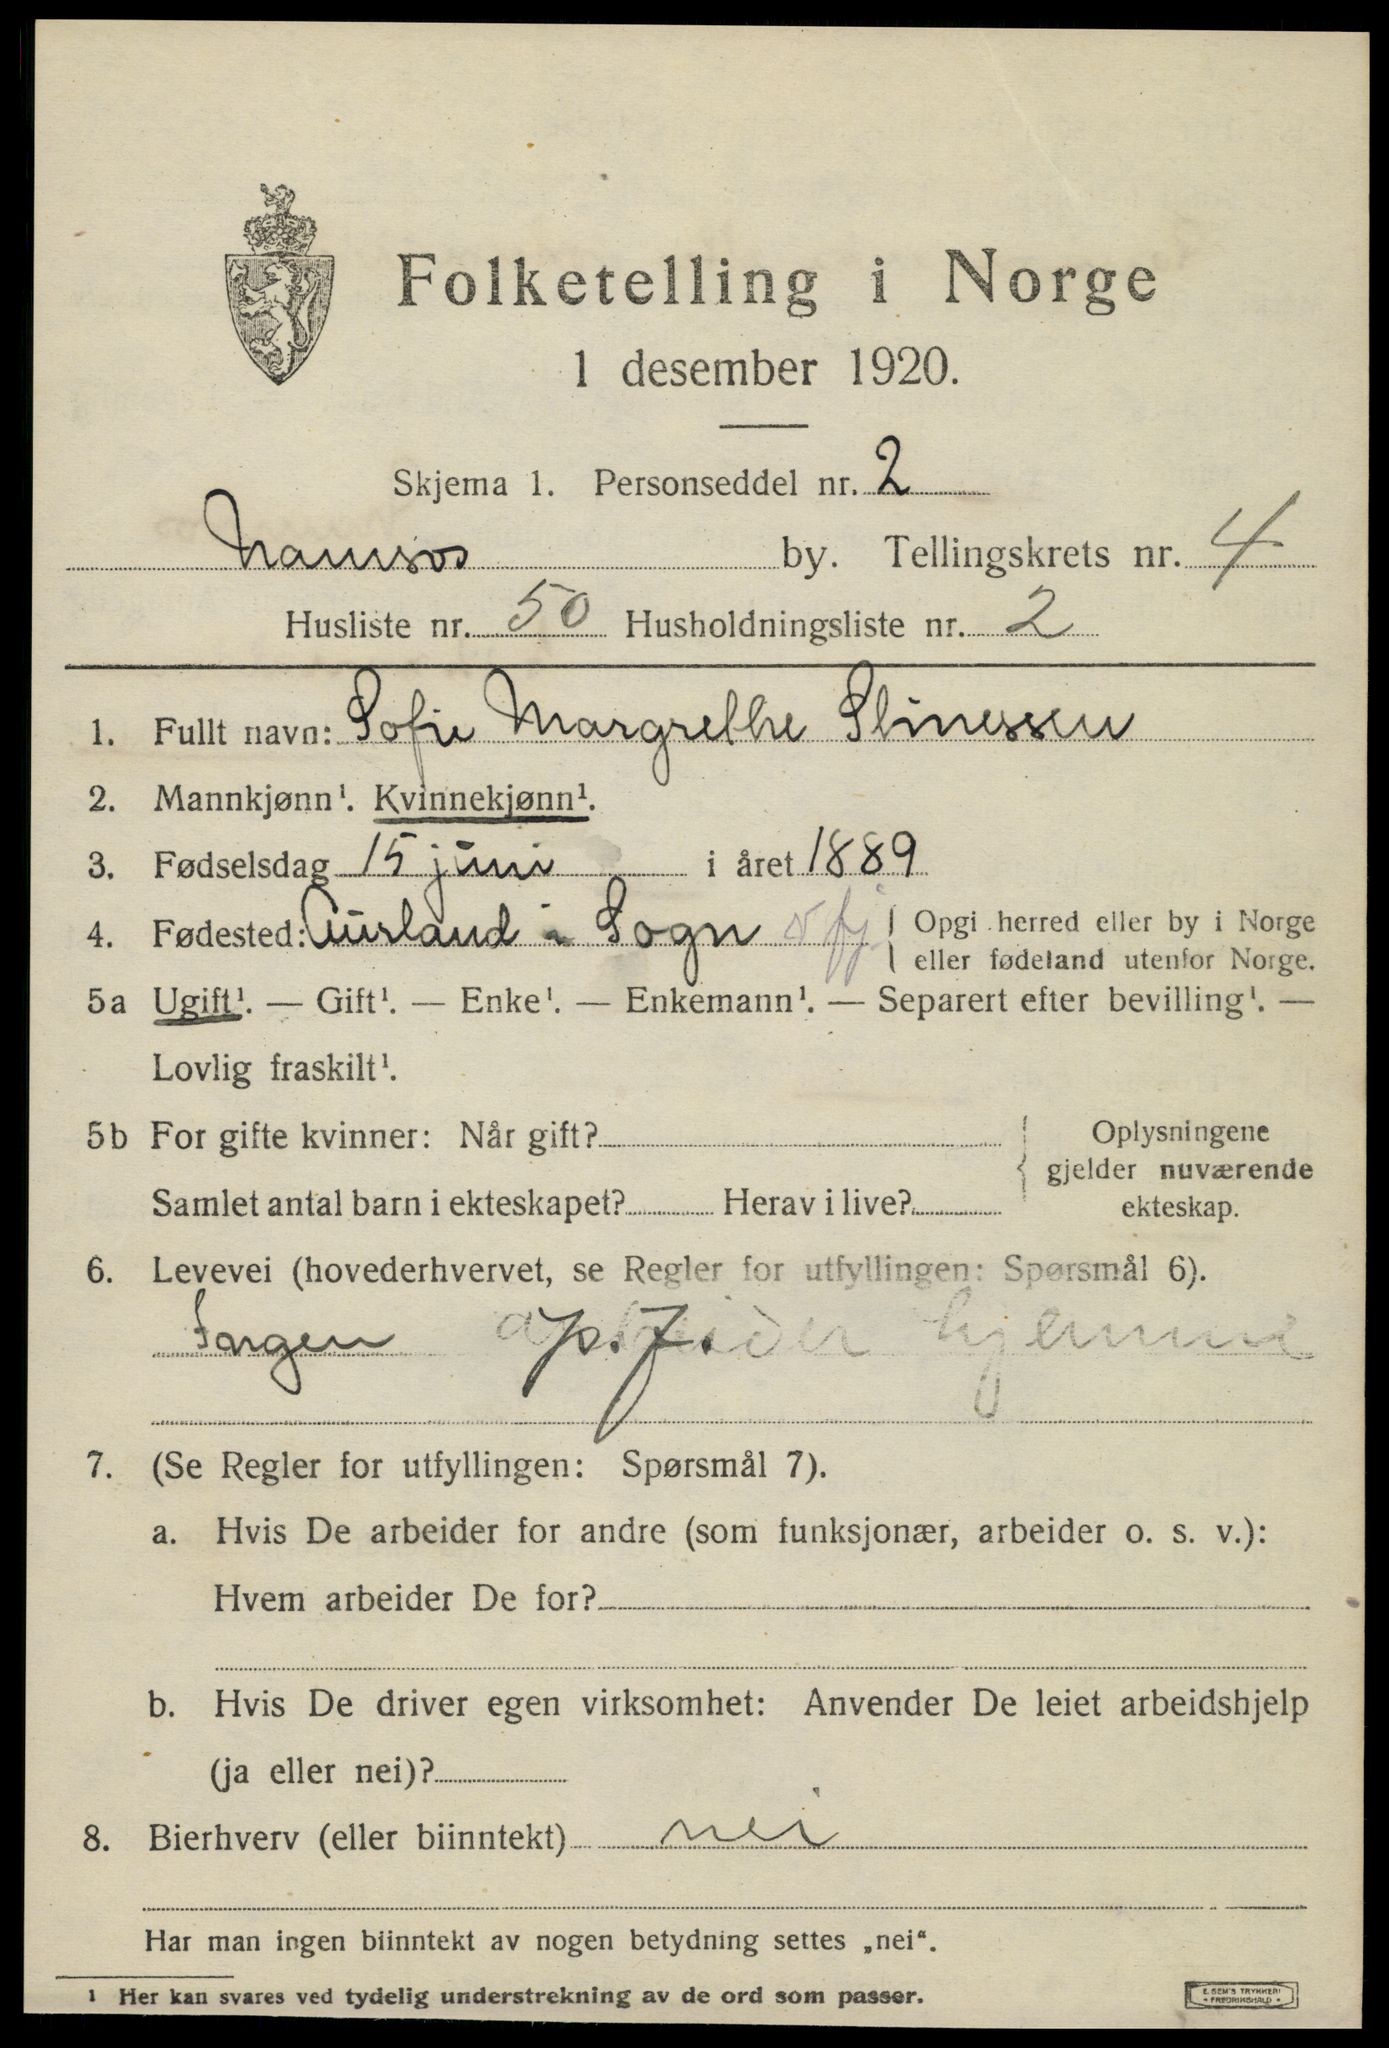 Folketelling i Norge
1 desember 1920.
Skjema 1. Personseddel nr. 2
Namsos by. Tellingskrets nr. 4
Husliste nr. 50 Husholdningsliste nr. 2
1. Fullt navn: Sofie Margrethe Stinessen
2. Mannkjønn¹. Kvinnekjønn¹.
3. Fødselsdag 15 juni i året 1889
4. Fødested: Aurland i Sogn fj { Opgi herred eller by i Norge
eller fødeland utenfor Norge.
5a Ugift¹. — Gift¹. — Enke¹. — Enkemann¹. — Separert efter bevilling¹. —
Lovlig fraskilt¹.
5b For gifte kvinner: Når gift? { Oplysningene
gjelder nuværende
Samlet antal barn i ekteskapet? Herav i live? ekteskap.
6. Levevei (hovederhvervet, se Regler for utfyllingen: Spørsmål 6).
hjemme
7. (Se Regler for utfyllingen: Spørsmål 7).
a. Hvis De arbeider for andre (som funksjonær, arbeider o. s. v.):
Hvem arbeider De for?
b. Hvis De driver egen virksomhet: Anvender De leiet arbeidshjelp
(ja eller nei)?
8. Bierhverv (eller biinntekt) nei
Har man ingen biinntekt av nogen betydning settes „nei“.
1 Her kan svares ved tydelig understrekning av de ord som passer.
E. SEM'S TRYKKERI
FREDRIKSHALD